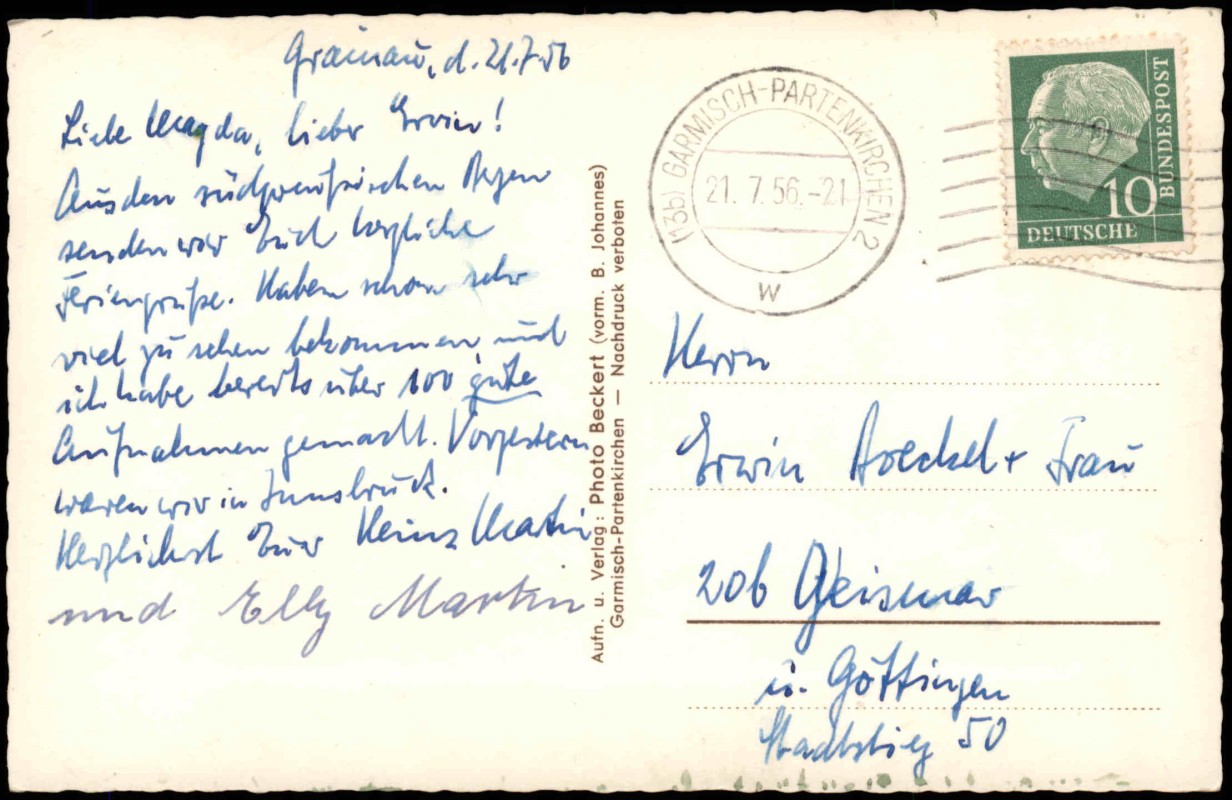 Grainau, d. 21.7.56
Liebe Magda, lieber Erwin!
Aus den südpreußischen Alpen
senden wir Euch herzliche
Feriengrüße. Haben schon sehr
viel zu sehen bekommen und
ich habe bereits über 100 gute
Aufnahmen gemacht. Vorgestern
waren wir in Innsbruck.
Herzlichst Euer Heinz Martin
und Elly Martin
Aufn. u. Verlag: Photo Beckert (vorm. B. Johannes)
Garmisch-Partenkirchen — Nachdruck verboten
(13b) GARMISCH-PARTENKIRCHEN 2
21. 7. 56.-21
W
10
DEUTSCHE
BUNDESPOST
Herrn
Erwin + Frau
20b Geismar
ü. Göttingen
Stadtstieg 50